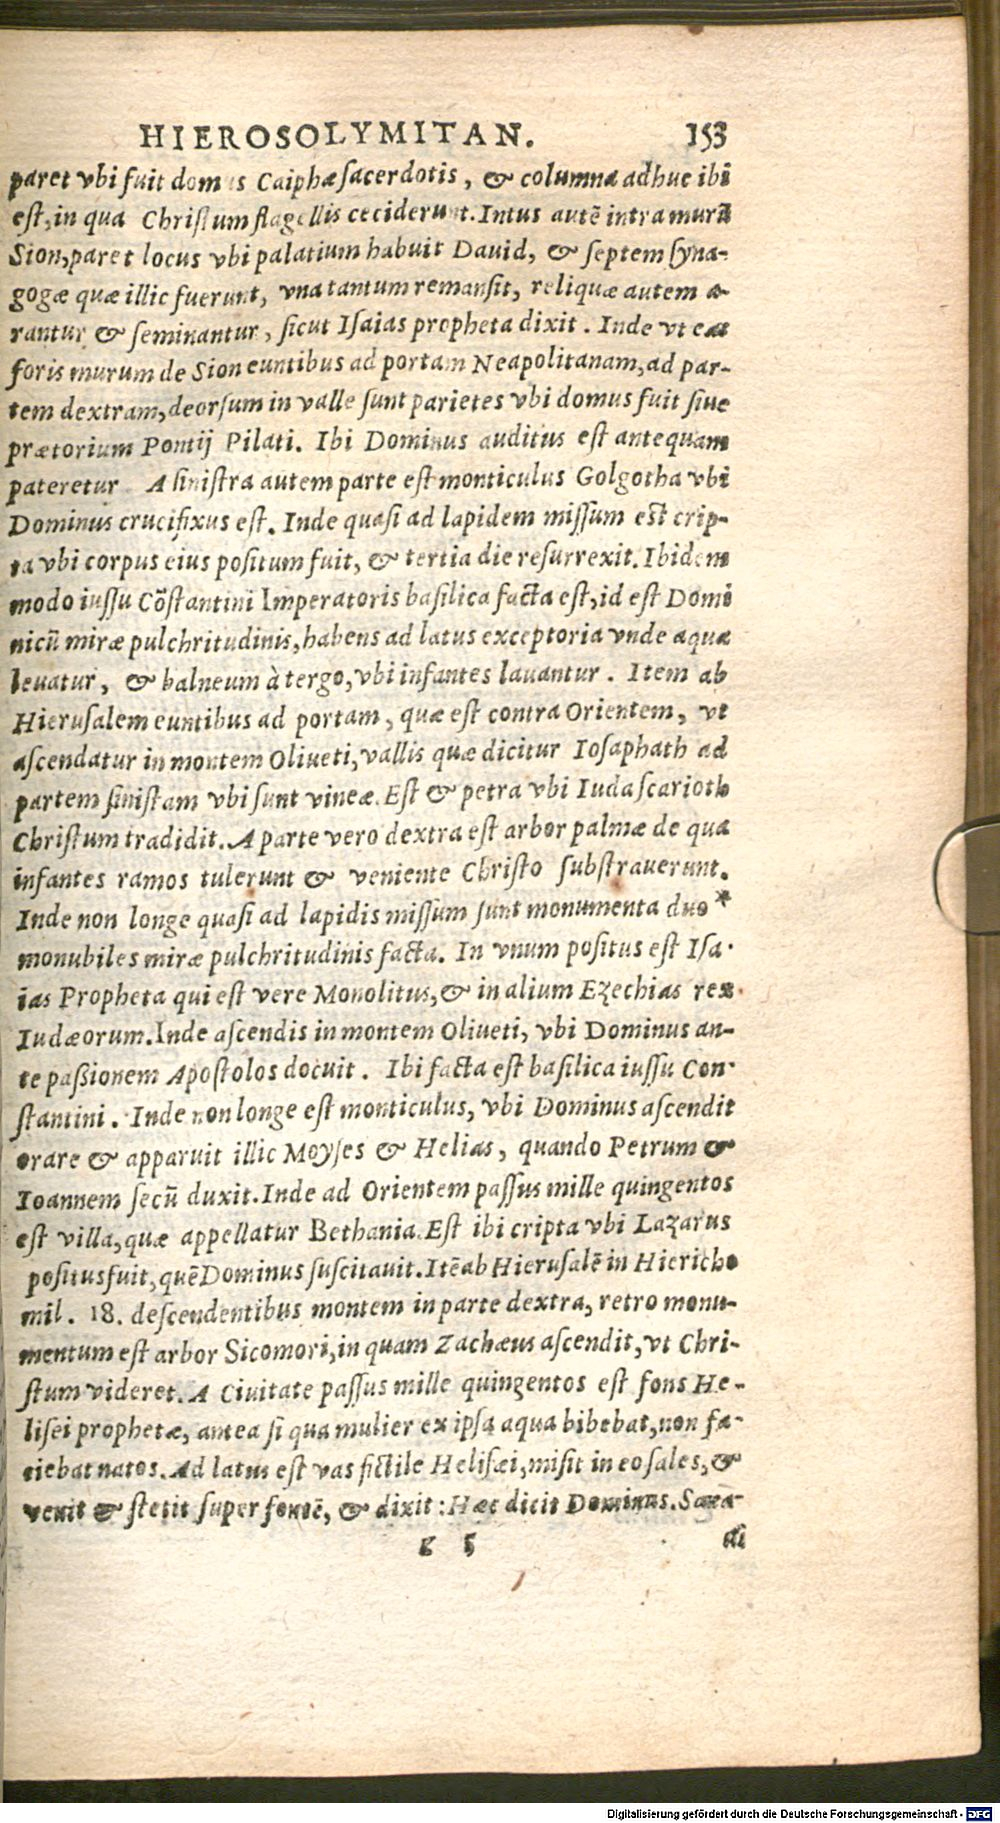 HIEROSOLYMITAN. 153
paret vbi fuit domus Caiphæ sacerdotis, & columna adhuc ibi
est, in qua Christum flagellis ceciderunt. Intus autē intra murū
Sion, paret locus vbi palatium habuit Dauid, & septem syna-
gogæ quæ illic fuerunt, vna tantum remansit, reliquæ autem a-
rantur & seminantur, sicut Isaias propheta dixit. Inde vt eas
foris murum de Sion euntibus ad portam Neapolitanam, ad par-
tem dextram, deorsum in valle sunt parietes vbi domus fuit siue
prætorium Pontij Pilati. Ibi Dominus auditus est antequam
pateretur A sinistra autem parte est monticulus Golgotha vbi
Dominus crucifixus est. Inde quasi ad lapidem missum est crip-
ta vbi corpus eius positum fuit, & tertia die resurrexit. Ibidem
modo iussu Cōstantini Imperatoris basilica facta est, id est Domi
nicū miræ pulchritudinis, habens ad latus exceptoria vnde aqua
leuatur, & balneum à tergo, vbi infantes lauantur. Item ab
Hierusalem euntibus ad portam, quæ est contra Orientem, vt
ascendatur in montem Oliueti, vallis quæ dicitur Iosaphath ad
partem sinistam vbi sunt vineæ. Est & petra vbi Iudas carioth
Christum tradidit. A parte vero dextra est arbor palmæ de qua
infantes ramos tulerunt & veniente Christo substrauerunt.
Inde non longe quasi ad lapidis missum sunt monumenta duo *
monubiles miræ pulchritudinis facta. In vnum positus est Isa-
ias Propheta qui est vere Monolitus, & in alium Ezechias rex
Iudæorum. Inde ascendis in montem Oliueti, vbi Dominus an-
te passionem Apostolos docuit. Ibi facta est basilica iussu Con-
stantini. Inde non longe est monticulus, vbi Dominus ascendit
orare & apparuit illic Moyses & Helias, quando Petrum &
Ioannem secū duxit. Inde ad Orientem passus mille quingentos
est villa, quæ appellatur Bethania. Est ibi cripta vbi Lazarus
positus fuit, quē Dominus suscitauit. Itē ab Hierusalē in Hiericho
mil. 18. descendentibus montem in parte dextra, retro monu-
mentum est arbor Sicomori, in quam Zachæus ascendit, vt Chri-
stum videret. A Ciuitate passus mille quingentos est fons He-
lisei prophetæ, antea si qua mulier ex ipsa aqua bibebat, non fa-
ciebat natos. Ad latus est vas fictile Helisæi, misit in eo sales, &
venit & stetit super fontē, & dixit: Hæc dicit Dominus. Sanā-
g 5 ui
Digitalisierung gefördert durch die Deutsche Forschungsgemeinschaft - DFG